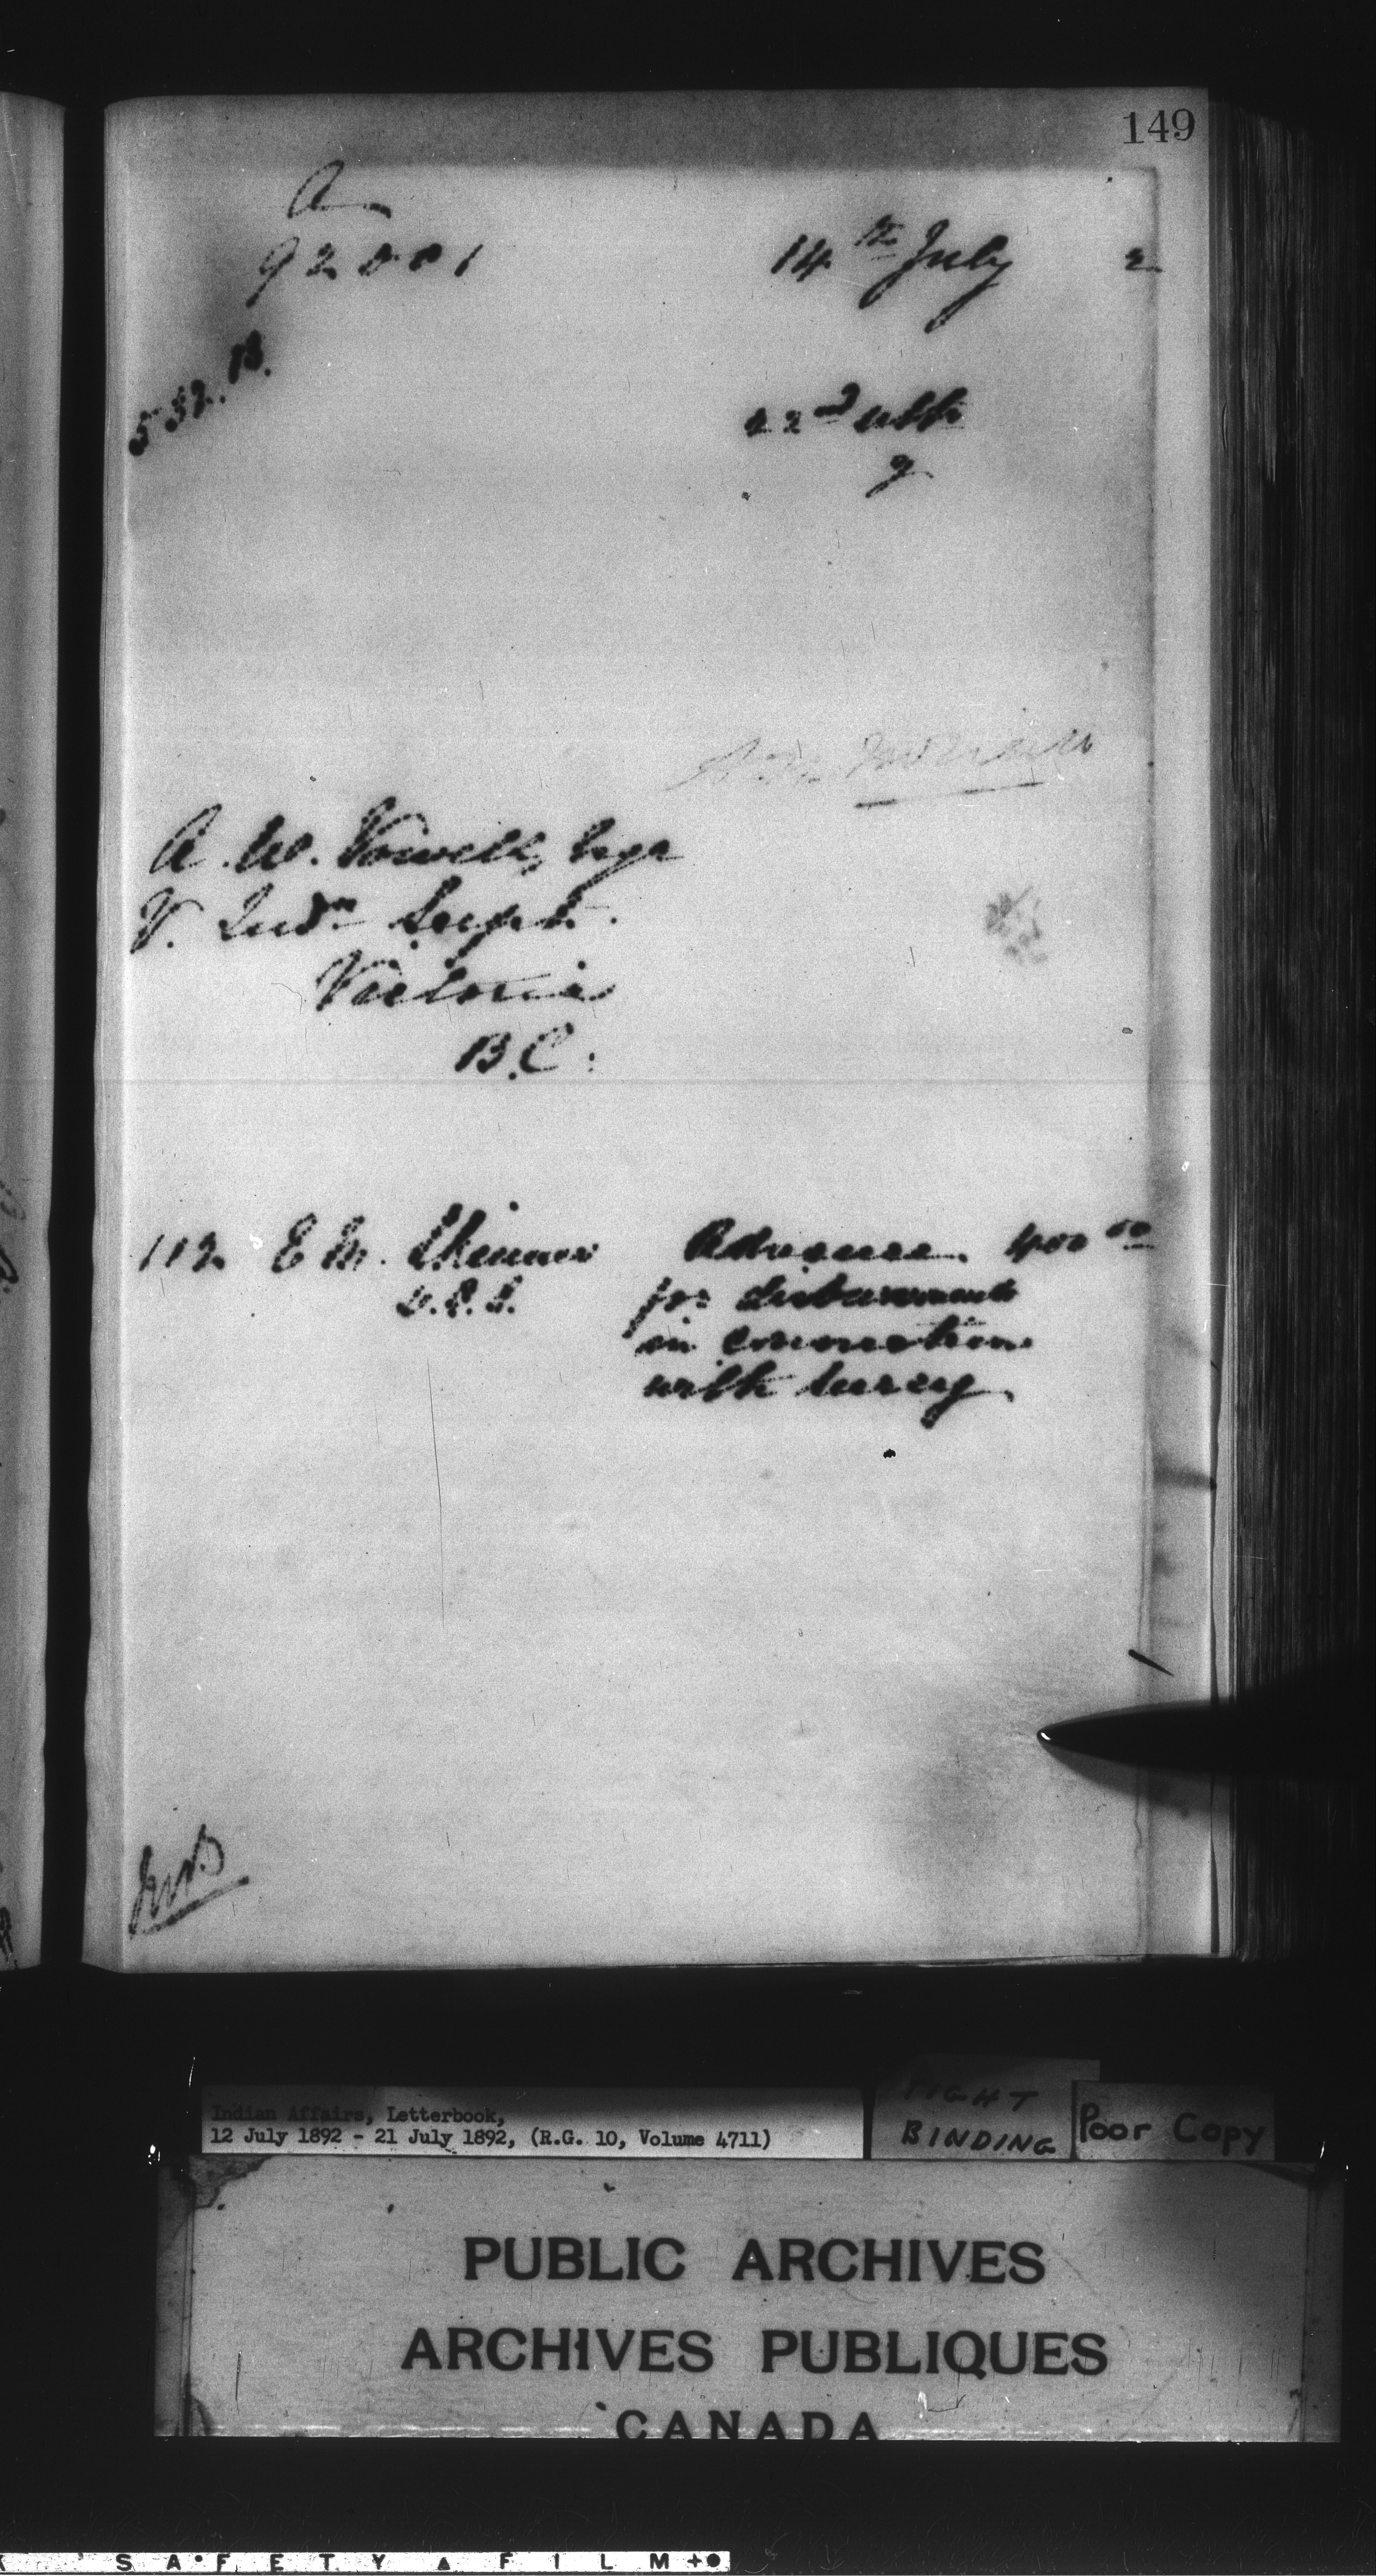 149
A
92001
14th July 2
532.13.
22nd ulto
A. W. Vowell, Esqr
V. Indn Supt.
Victoria
B.C.
112 E. M. Skinner Advance 400 00
D.L.S. for disbursements
in connection
with survey
Indian Affairs, Letterbook,
12 July 1892 - 21 July 1892, (R.G. 10, Volume 4711)
TIGHT
BINDING
Poor Copy
PUBLIC ARCHIVES
ARCHIVES PUBLIQUES
CANADA
SAFETY ▲ FILM